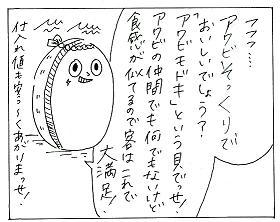 フフフ……
アワビそっくりで
おいしいでしょう?
「アワビモドキ」という貝でっせ!
アワビの仲間でも何でもないけど
食感が似てるので客はこれで
大満足!
仕入れ値も安〜くあがりまっせ!